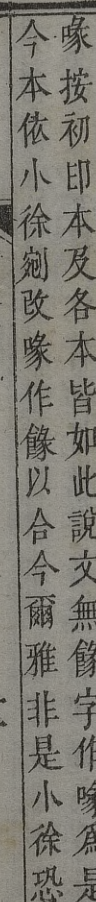 喙按初印本及各本皆如此說文無餯字作喙爲是
今本依小徐剜改喙作餯以合今爾雅非是小徐恐